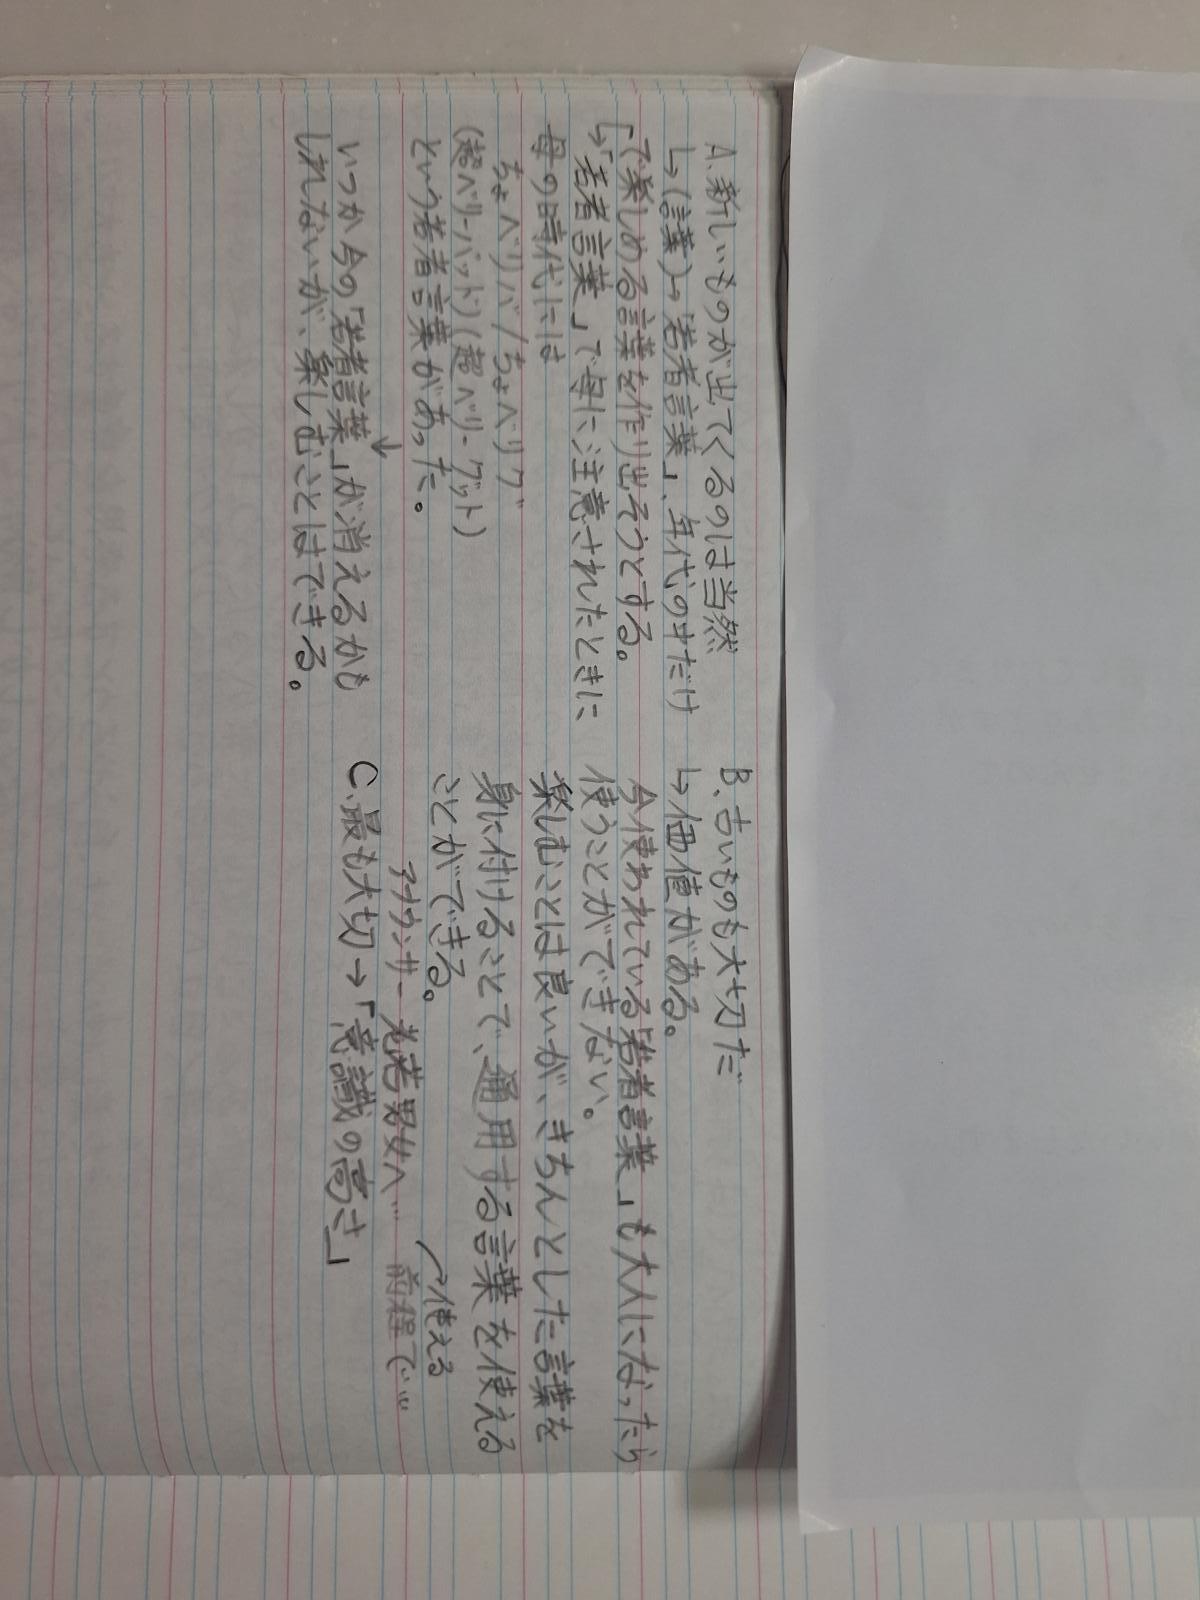 A.新しいものが出てくるのは当然
↳(言葉)→「若者言葉」、年代の中だけ
で楽しめる言葉を作り出そうとする。
↳「若者言葉」で母に注意されたときに
母の時代には
ちょベリバ/ちょベリグ
(超ベリーバット)(超ベリーグット)
という若者言葉があった。
↓
いつか今の「若者言葉」が消えるかも
しれないが、楽しむことはできる。
B.古いものも大切だ
↳価値がある。
今使われている「若者言葉」も大人になったら
使うことができない。
楽しむことは良いが、きちんとした言葉を
身に付けることで、通用する言葉を使える
ことができる。
→使える
アナウンサー 老若男女へ… 前程で…
C.最も大切→「意識の高さ」